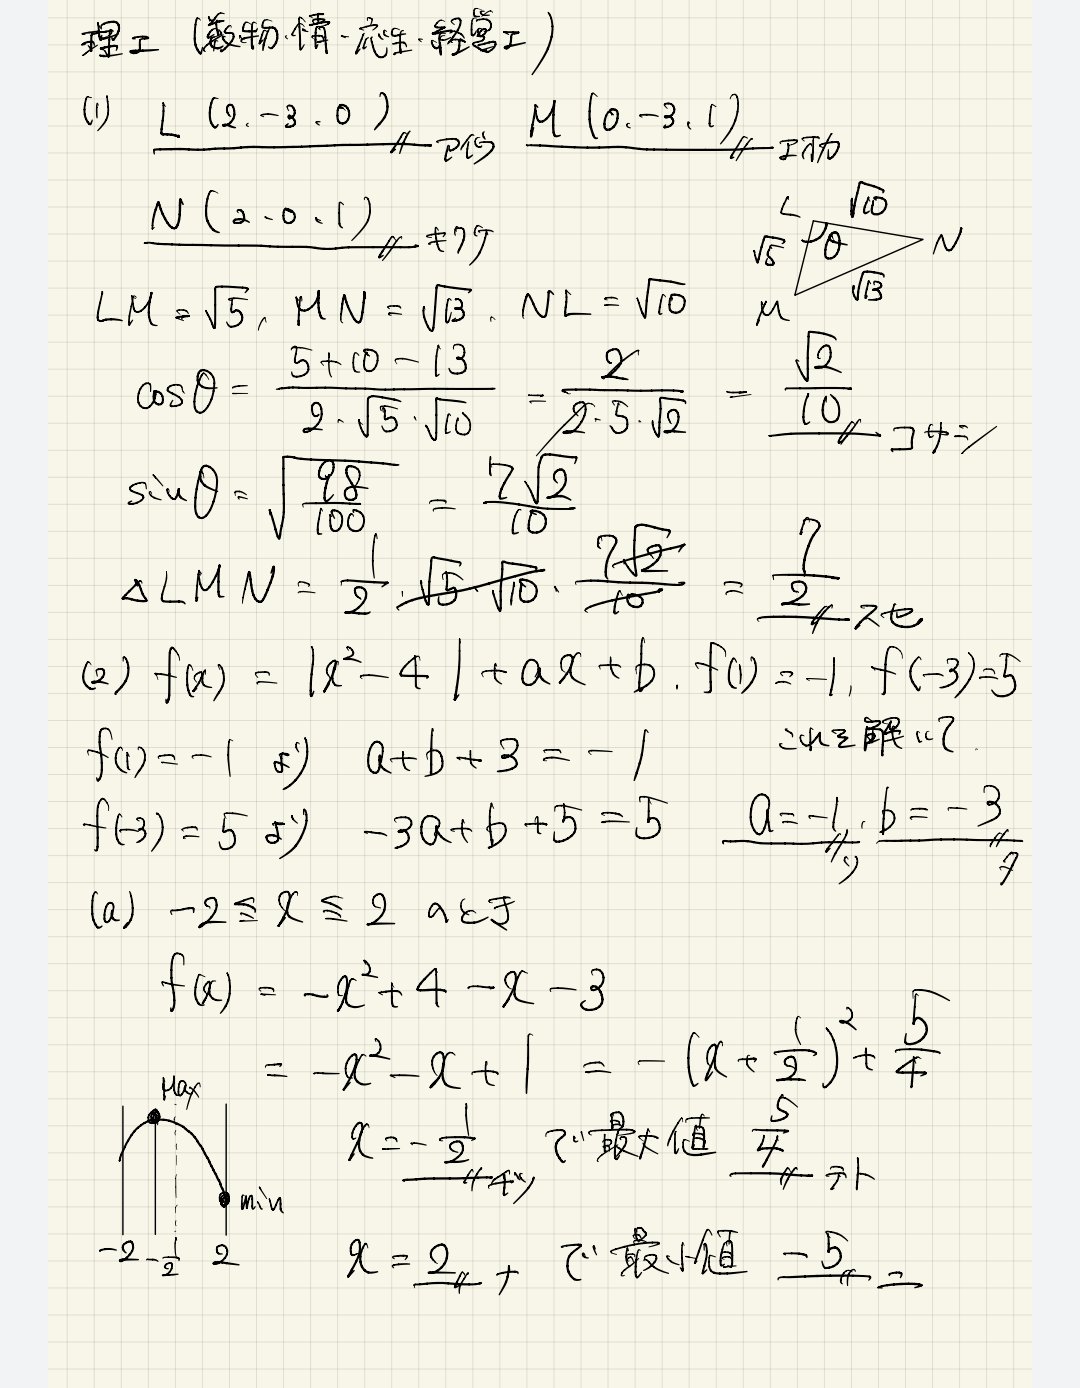 理工 (数物・情・応生・経営工)
(1) L (2, -3, 0) アイウ M (0, -3, 1) エオカ
N (2, 0, 1) キクケ
L √10 N √5 θ √13 M
LM = √5, MN = √13, NL = √10
cosθ = (5+10-13)/(2・√5・√10) = 2/(2・5・√2) = √2/10 コサシ
sinθ = √(98/100) = 7√2/10
△LMN = 1/2・√5・√10・7√2/10 = 7/2 スセ
(2) f(x) = |x²-4|+ax+b, f(1) = -1, f(-3)=5
f(1) = -1 より a+b+3 = -1 これを解いて
f(-3) = 5 より -3a+b+5=5 a=-1, b=-3
(a) -2≦x≦2 のとき
f(x) = -x²+4-x-3
= -x²-x+1 = -(x+1/2)²+5/4
Max
x=-1/2 チツ で最大値 5/4 テト
min
-2 -1/2 2
x=2 ナ で最小値 -5 ニ